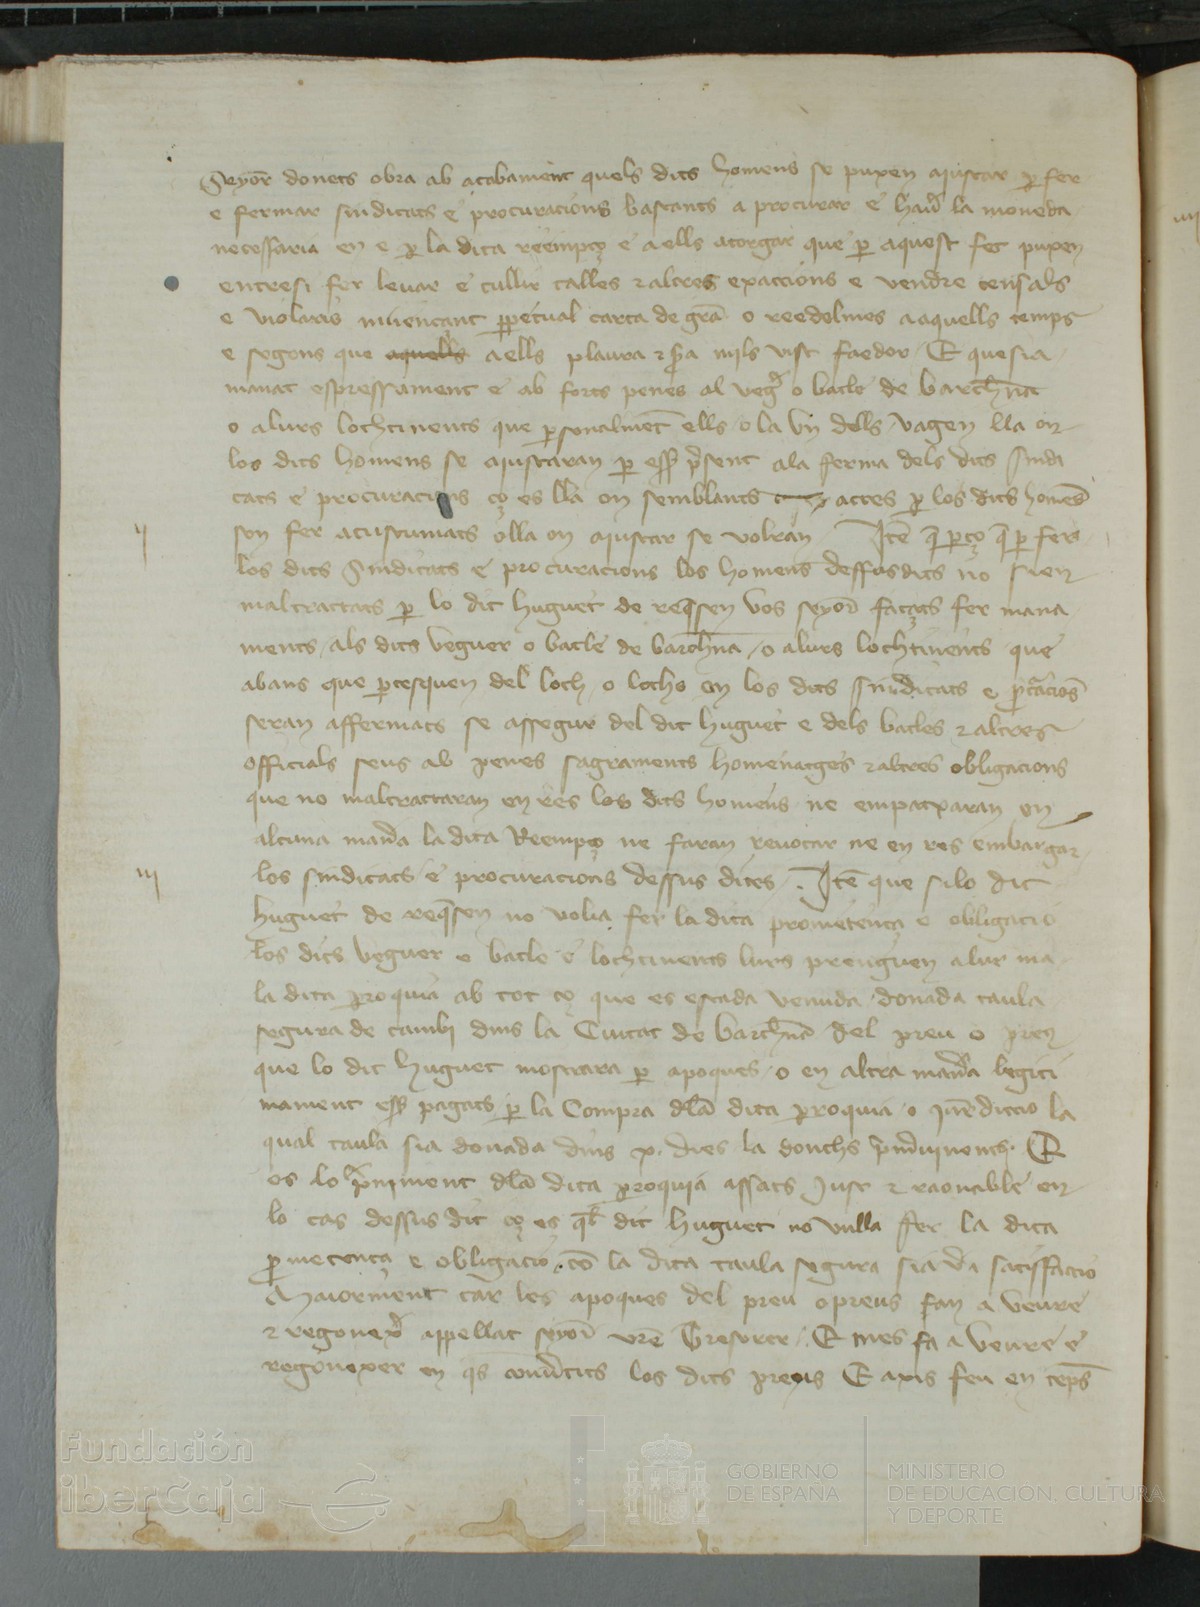 Seyor donets obra ab acabament quels dits homens se puxen aiustar per fer
e fermar sindicats e procuracions bastants a procurar e hauer la moneda
necessaria en e per la dita reempço e a ells atorgar que per aquest fet puxen
entresi fer leuar e cullir talles & altres exaccions e vendre censals
e violaris mijençant perpetual carta de gra o reedelmes a aquells temps
e segons que aquells a ells plaura & sera mils vist faedor. E que sia
manat espressament e ab forts penes al veguer o batle de barchna
o alurs lochtinents que personalment ells o la un dells vagen lla on
los dits homens se aiustaran per esser present ala ferma dels dits sindi
cats e procuracions ço es lla on semblants actes per los dits homens
son fer acustumats o lla on aiustar se volran Item que per ço que per fer
ij
los dits Sindicats e procuracions los homens dessusdits no sien
maltractats per lo dit huguet de reqsen vos seyor façats fer mana
ments als dits veguer o batle de barchna o alurs lochtinents que
abans que partesquen del loch o lochs on los dits sindicats e procuracions
seran affermats se assegur del dit huguet e dels batles & altres
officials seus ab penes sagraments homenatges & altres obligacions
que no maltractaran en res los dits homens ne empatxaran en
alcuna manera la dita Reempço ne faran reuocar ne en res embargar
iij
los sindicats e procuracions dessus dites. Item que si lo dit
huguet de reqsen no volia fer la dita prometença e obligacio
los dits veguer o batle e lochtinents lurs prenguen a lur ma
la dita parroquia ab tot ço que es estada venuda donada taula
segura de cambi dins la Ciutat de barchna del preu o preus
que lo dit huguet mostrara per apoques o en altra manera legiti
mament esser pagats per la Compra dela dita parroquia o jurediccio la
qual taula sia donada dins x. dies la donchs primer vinents. E
es lo preniment dela dita parroquia assats just & raonable en
lo cas dessus dit ço es quel dit huguet no vulla fer la dita
prometença e obligacio, com la dita taula segura sia vera satisfaccio
Maiorment car les apoques del preu o preus fan a veure
& regonexer appellat seyor vostre Tresorer. E mes fa a veure e
regonexer en qs conuertits los dits preus E axis feu en temps